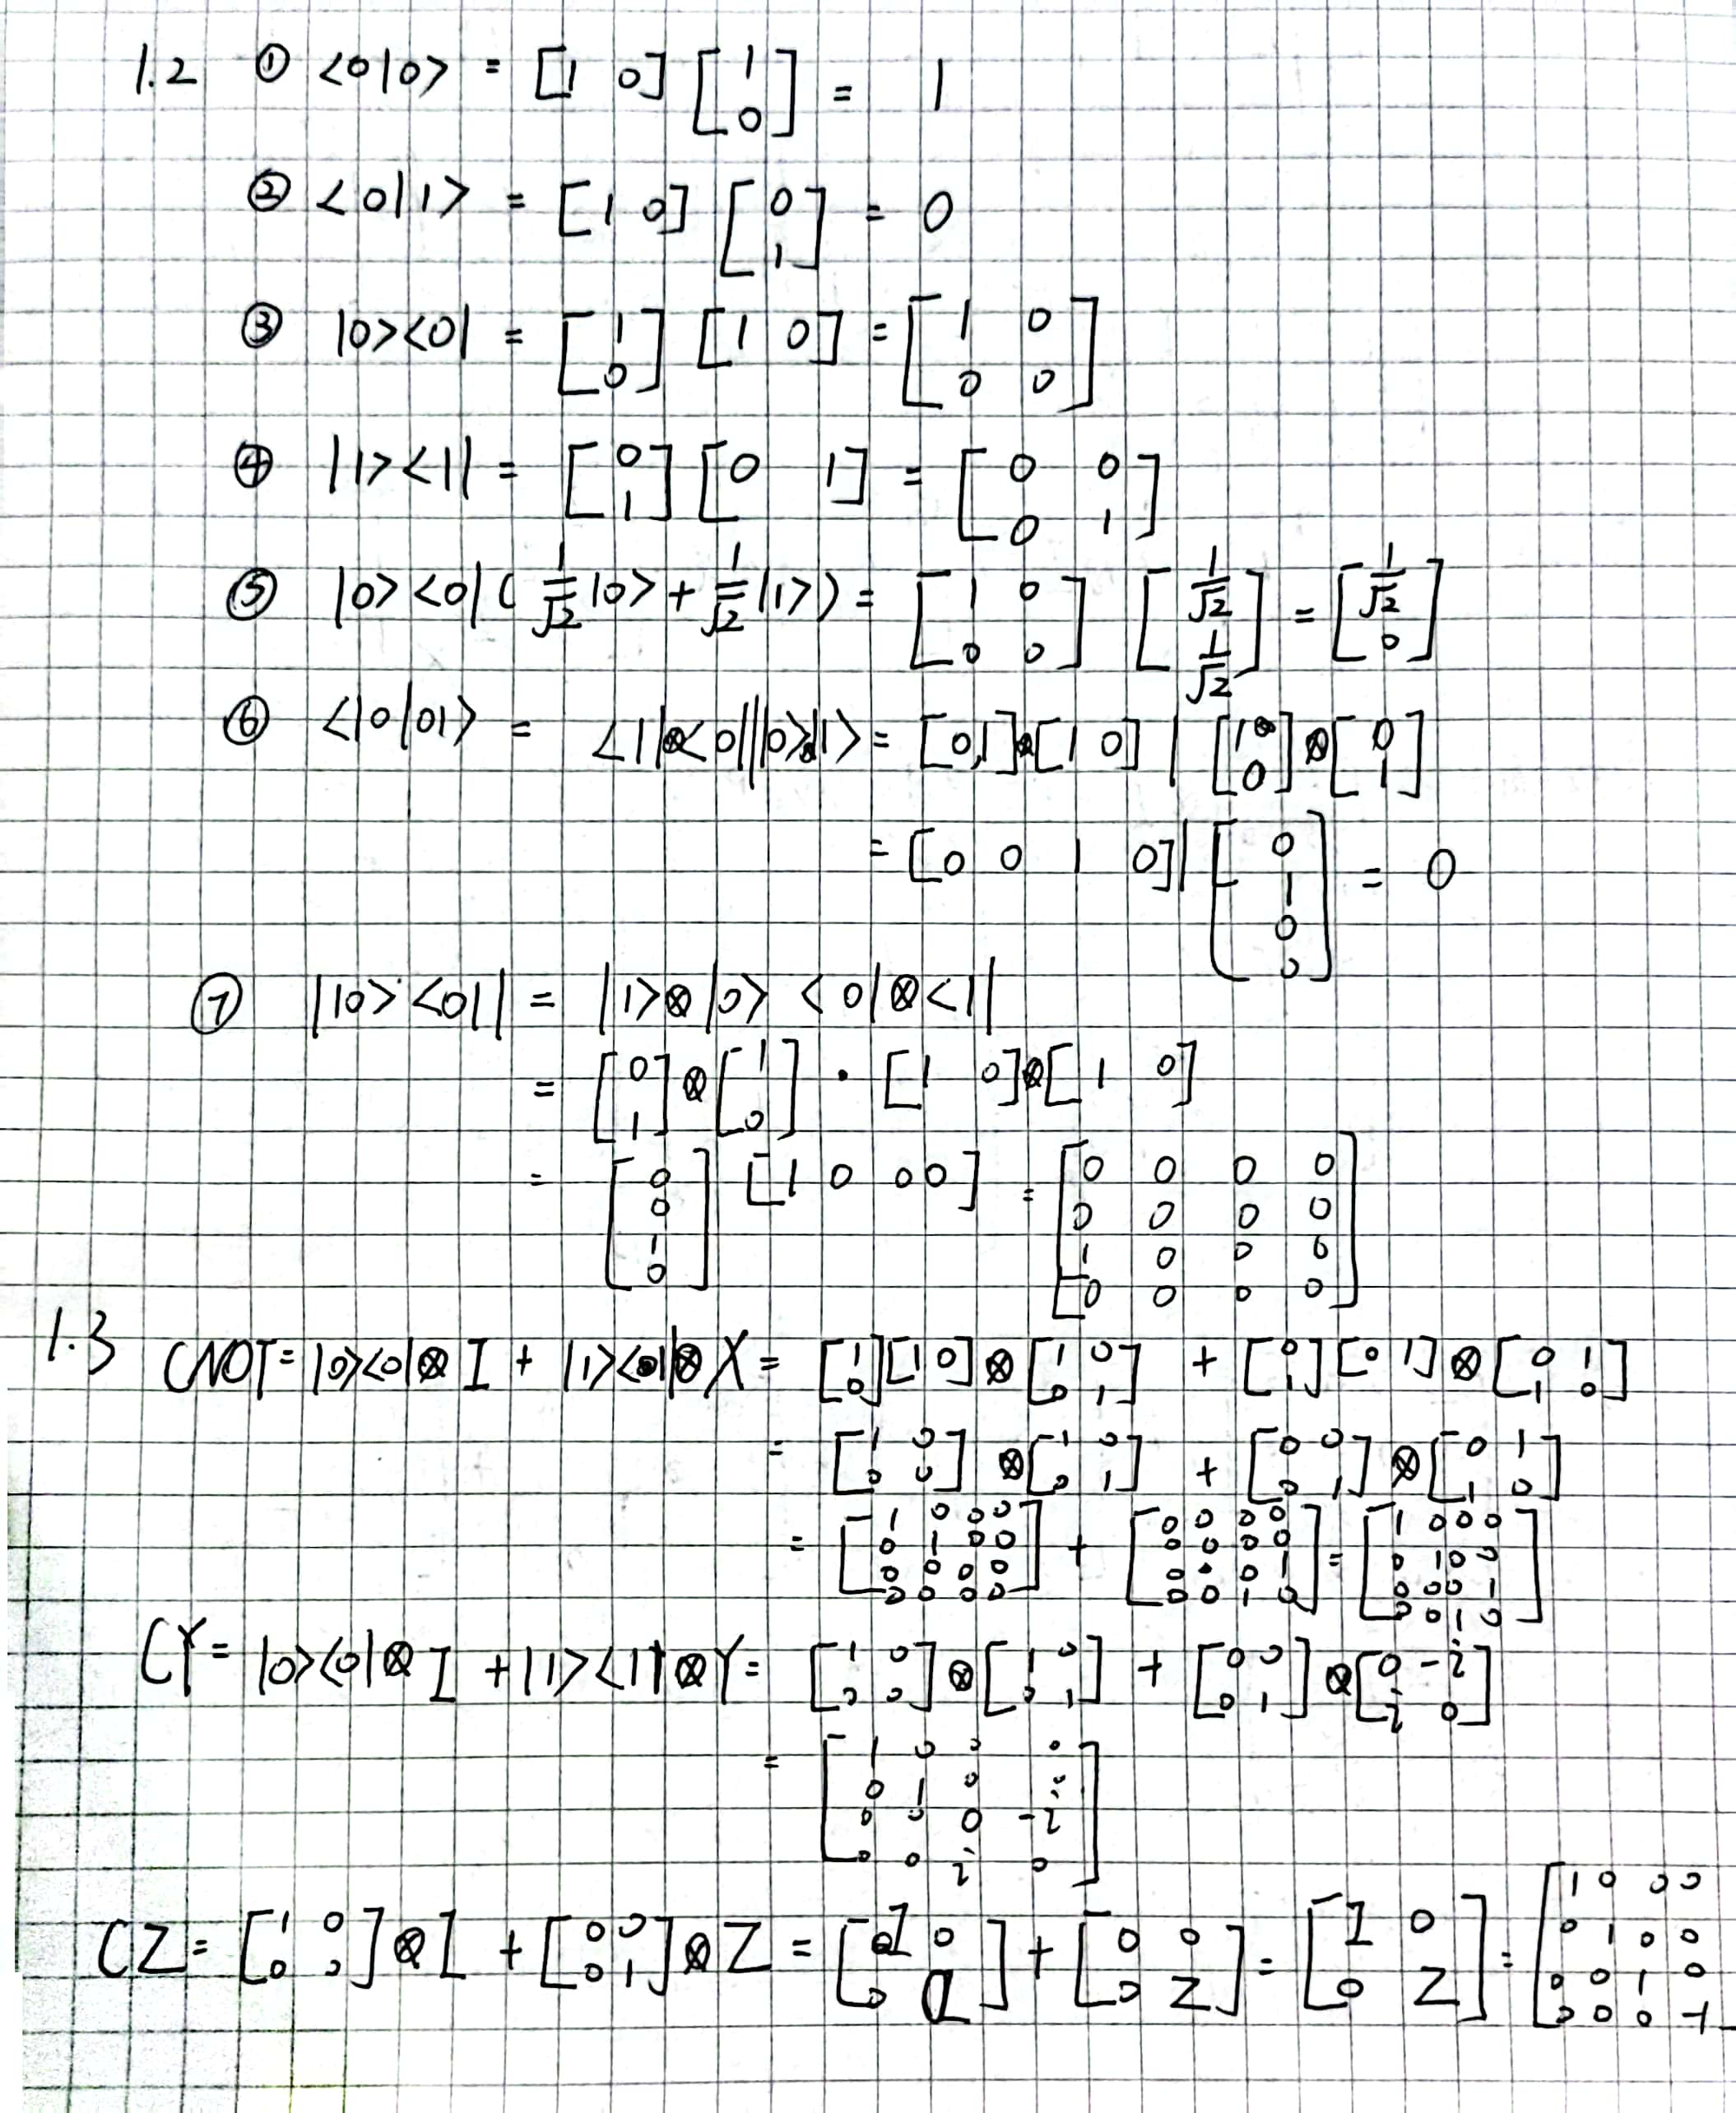 1.2 ① <0|0> = [1 0] [1; 0] = 1
② <0|1> = [1 0] [0; 1] = 0
③ |0><0| = [1; 0] [1 0] = [1 0; 0 0]
④ |1><1| = [0; 1] [0 1] = [0 0; 0 1]
⑤ |0><0| ( 1/√2 |0> + 1/√2 |1> ) = [1 0; 0 0] [1/√2; 1/√2] = [1/√2; 0]
⑥ <10|01> = <1|⊗<0||0>⊗|1> = [0,1]⊗[1 0] | [1; 0]⊗[0; 1]
= [0 0 1 0] | [0; 1; 0; 0] = 0
⑦ |10><01| = |1>⊗|0> <0|⊗<1|
= [0; 1]⊗[1; 0] · [1 0]⊗[1 0]
= [0; 0; 1; 0] [1 0 0 0] = [0 0 0 0; 0 0 0 0; 1 0 0 0; 0 0 0 0]
1.3 CNOT = |0><0|⊗I + |1><0|⊗X = [1; 0][1 0]⊗[1 0; 0 1] + [0; 1][0 1]⊗[0 1; 1 0]
= [1 0; 0 0]⊗[1 0; 0 1] + [0 0; 0 1]⊗[0 1; 1 0]
= [1 0 0 0; 0 1 0 0; 0 0 0 0; 0 0 0 0] + [0 0 0 0; 0 0 0 0; 0 0 0 1; 0 0 1 0] = [1 0 0 0; 0 1 0 0; 0 0 0 1; 0 0 1 0]
CY = |0><0|⊗I + |1><1|⊗Y = [1 0; 0 0]⊗[1 0; 0 1] + [0 0; 0 1]⊗[0 -i; i 0]
= [1 0 0 0; 0 1 0 0; 0 0 0 -i; 0 0 i 0]
CZ = [1 0; 0 0]⊗I + [0 0; 0 1]⊗Z = [I 0; 0 0] + [0 0; 0 Z] = [I 0; 0 Z] = [1 0 0 0; 0 1 0 0; 0 0 1 0; 0 0 0 -1]